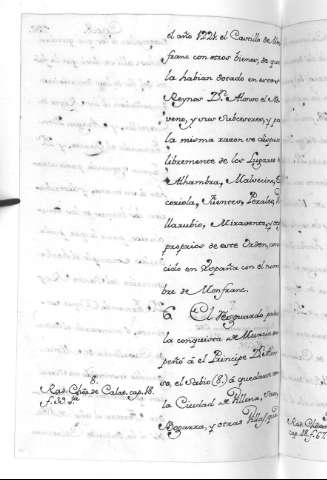 el año 1221. el Castillo de Mon
franc con otros bienes, de que
la habian dotado en estos
Reynos Dn. Alonso el No
veno, y sus Subcesores, y po
la misma razon se despues
libremente de los Lugares
Alhambra, Malvecino,
ceriola, Fuentes, Perales,
llarubio, Miravente, y ot
proprios de este Orden, cono
cido en España con el nom
bre de Monfranc.
6. El Resguardo, para
la conquista de Murcia em
peñó á el Principe Dn. Alon
so, el Sabio (8.) á quedarse con
la Ciudad de Villena, Sax,
Bogarra, y otras Villas, que
8.
Rad. Chro. de Calat. cap. 18.
f. 33.
Rad. Chron
cap. 18. f. 67.